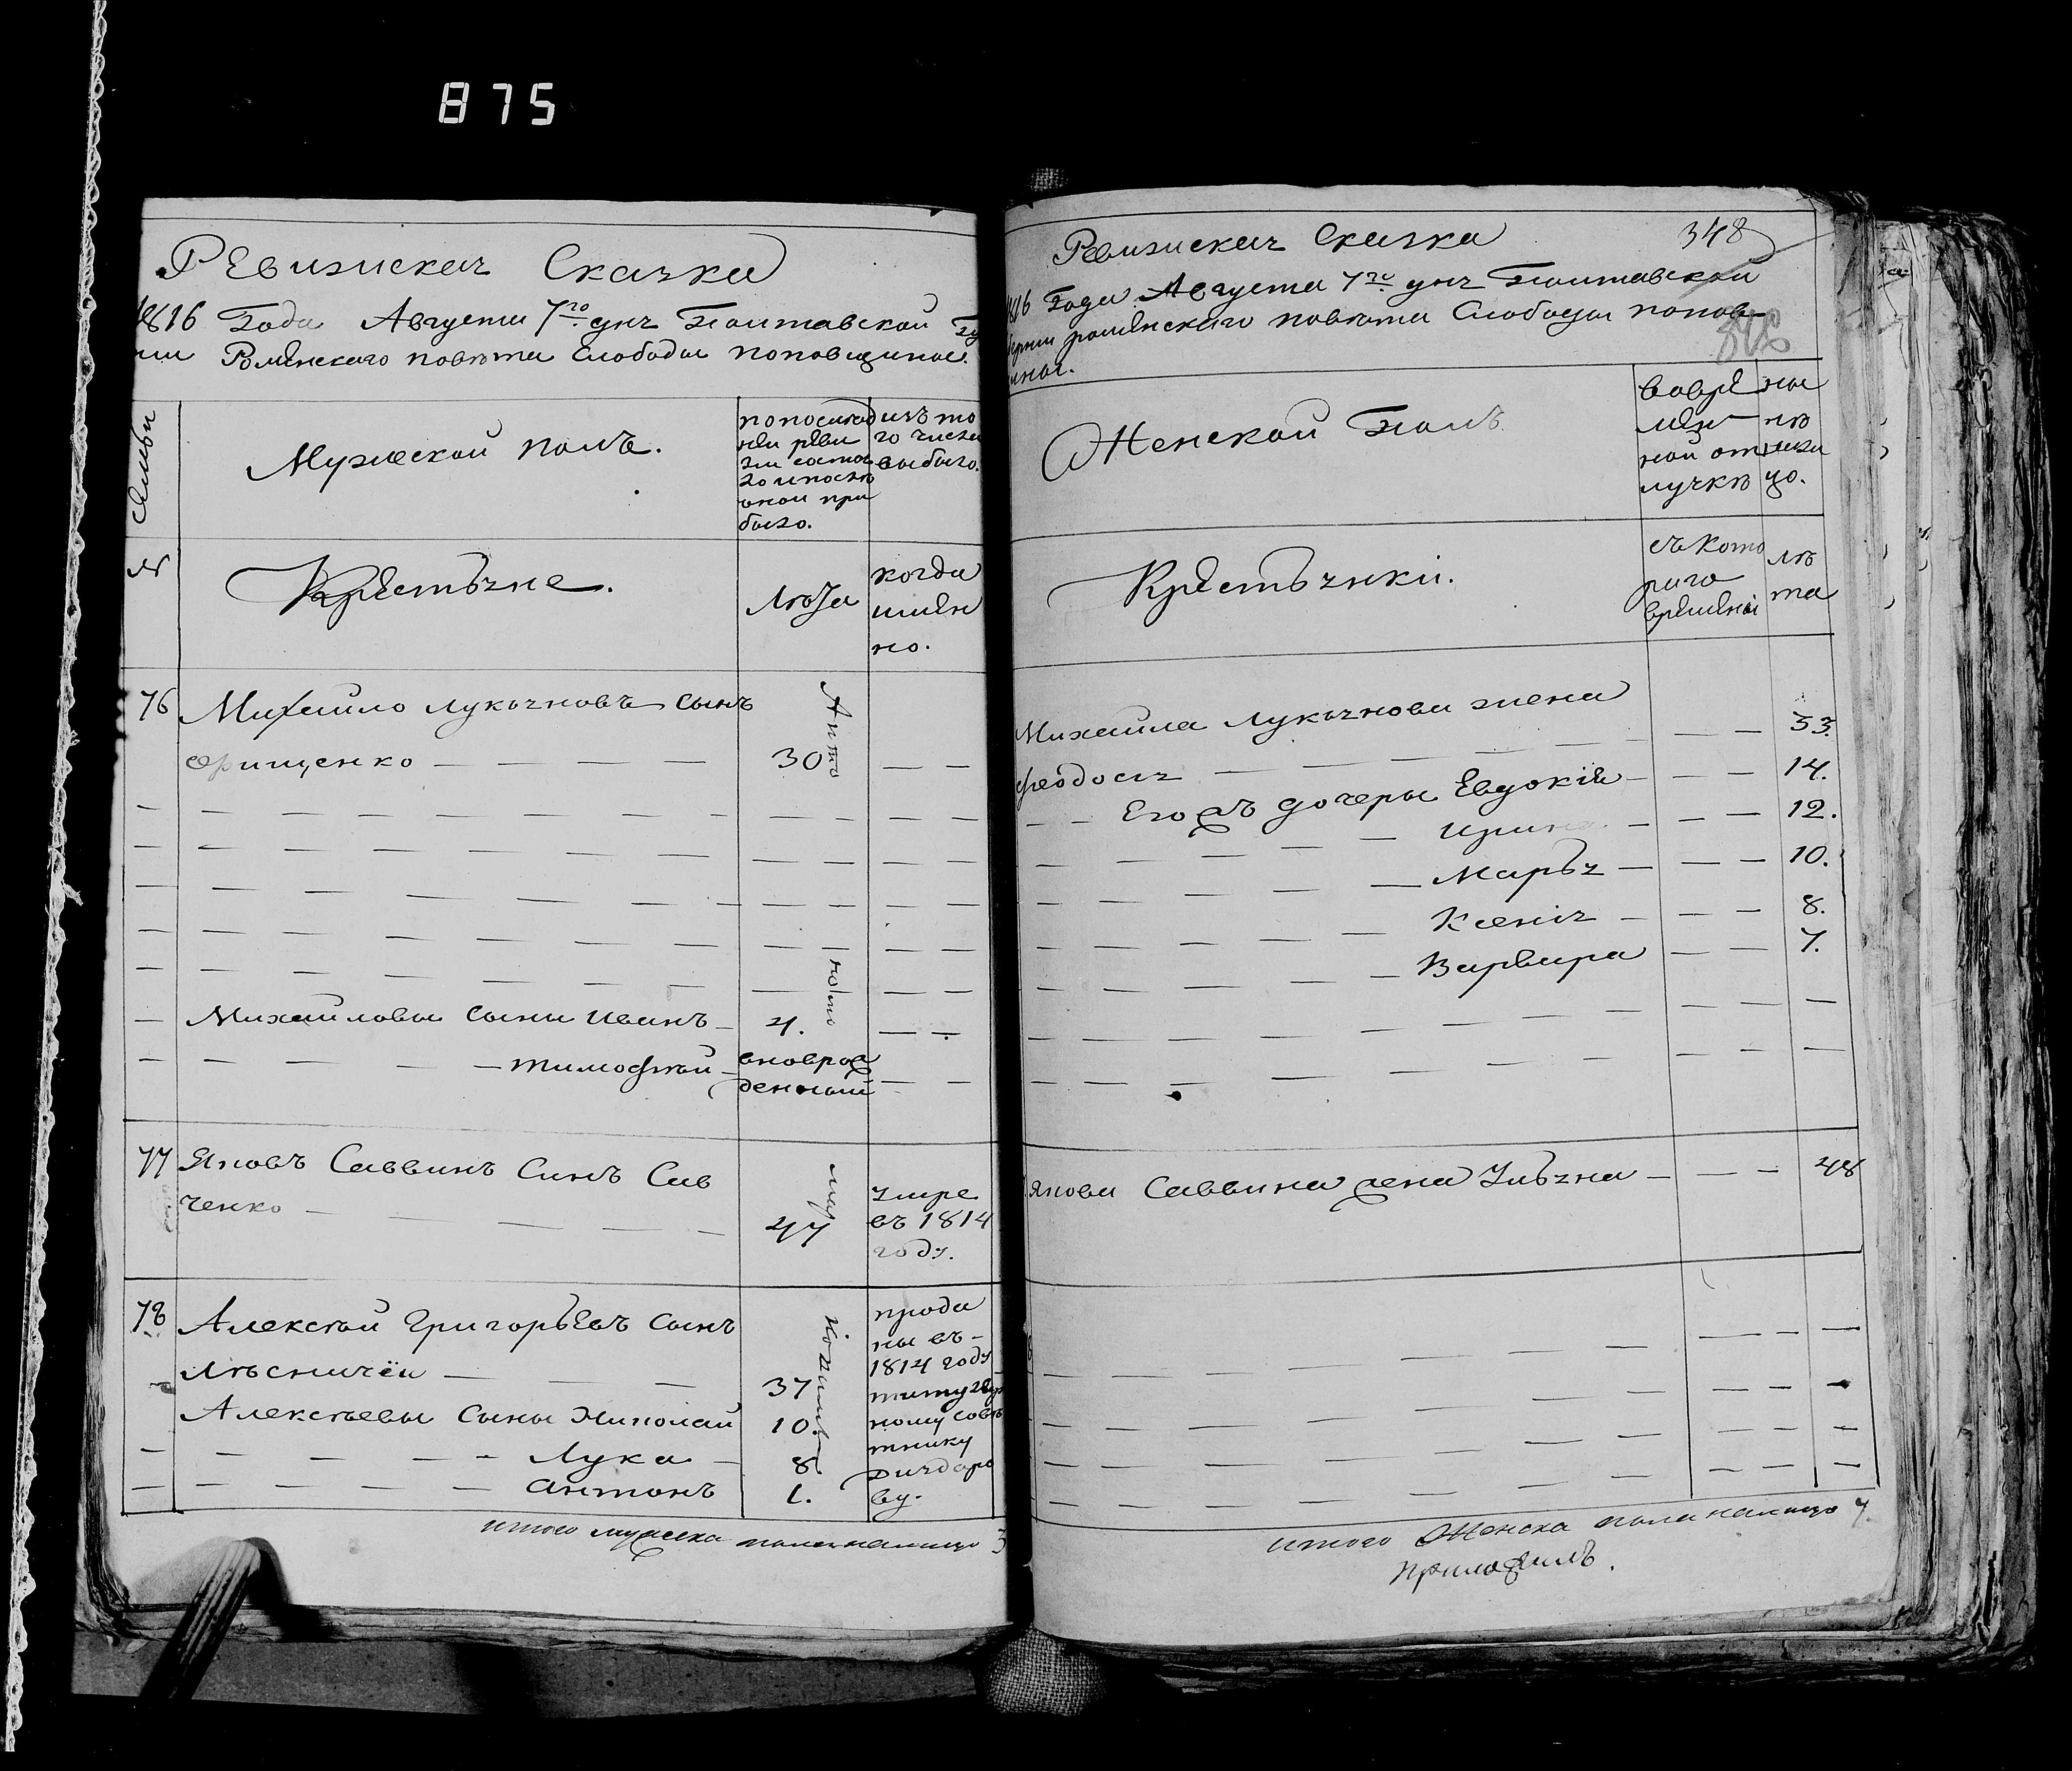 875
Ревизская Сказка
1816 Года Августа 7го дня Полтавской гу
нии Роменского повета Слободы поповщины.
семьи
Мужеской полъ.
по последней ревизии состояло и после оной прибыло.
изъ того числа выбыло.
№
Крестьяне.
Лѣта
когда
имен
но.
76 Михайло лукьяновъ сынъ
Фрищенко — — — — 30 — —
Михайловы сыни иванъ — 4. — —
тимофѣй — вновърож
денный — —
77 Яковъ Саввинъ Синъ Сав
ченко — — — — 47
умре
въ 1814
году.
78 Алексѣй григорьевъ сынъ
Лѣсничёи — — — 37
Алексѣевы сыны Николай 10.
Лука — 8
антонъ 1.
прода
ны въ
1814 году
титуляр
ному совѣ
тнику
ву.
итого мужска пола налицо 3
348
Ревизская Сказка
1816 Года Августа 7го дня Полтавской
бернии роменскаго повѣта Слободы попов
ины.
Женской Полъ
вовре
мен
ной от
лучкѣ
ны
нѣ
нали
цо.
Крестьянки.
съ кото
раго
времены
лѣ
та
Михайла лукьянова жена
феодосья — — — — 33.
Его жъ дочеры Евдокія — — — 14.
ирина — — — 12.
Марья — — — 10.
Ксенія — — — 8.
Варвара — — 7.
Якова Саввина жена Ульяна — — — 48
итого Женска пола налицо 7.
приложилъ.